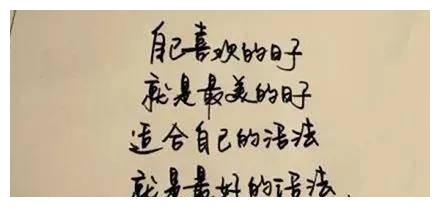 自己喜欢的日子
就是最美的日子
适合自己的活法
就是最好的活法.